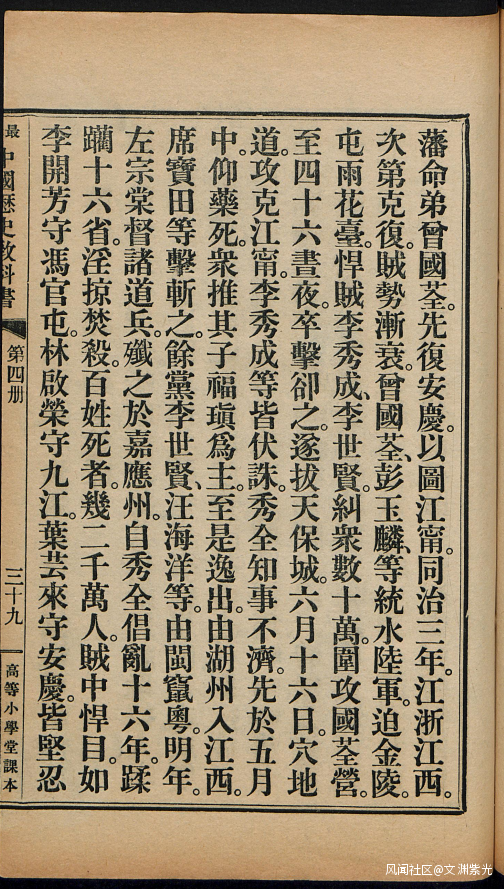 藩命弟曾國荃。先復安慶。以圖江甯。同治三年。江浙江西。
次第克復。賊勢漸衰。曾國荃、彭玉麟、等統水陸軍。迫金陵。
屯雨花臺。悍賊李秀成、李世賢。糾衆數十萬。圍攻國荃營。
至四十六晝夜。卒擊卻之。遂拔天保城。六月十六日。穴地
道。攻克江甯。李秀成等皆伏誅。秀全知事不濟。先於五月
中。仰藥死。衆推其子福瑱爲主。至是逸出。由湖州入江西。
席寶田等擊斬之。餘黨李世賢、汪海洋等。由閩竄粵。明年。
左宗棠督諸道兵。殲之於嘉應州。自秀全倡亂十六年。蹂
躪十六省。淫掠焚殺。百姓死者。幾二千萬人。賊中悍目。如
李開芳守馮官屯。林啟榮守九江。葉芸來守安慶。皆堅忍
最 中國歷史教科書 第四册 三十九 高等小學堂課本
风闻社区@文渊紫光